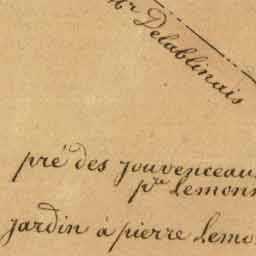 Mr Delablinais
pré des jouvenceau
pre lemon
jardin à pierre lemo